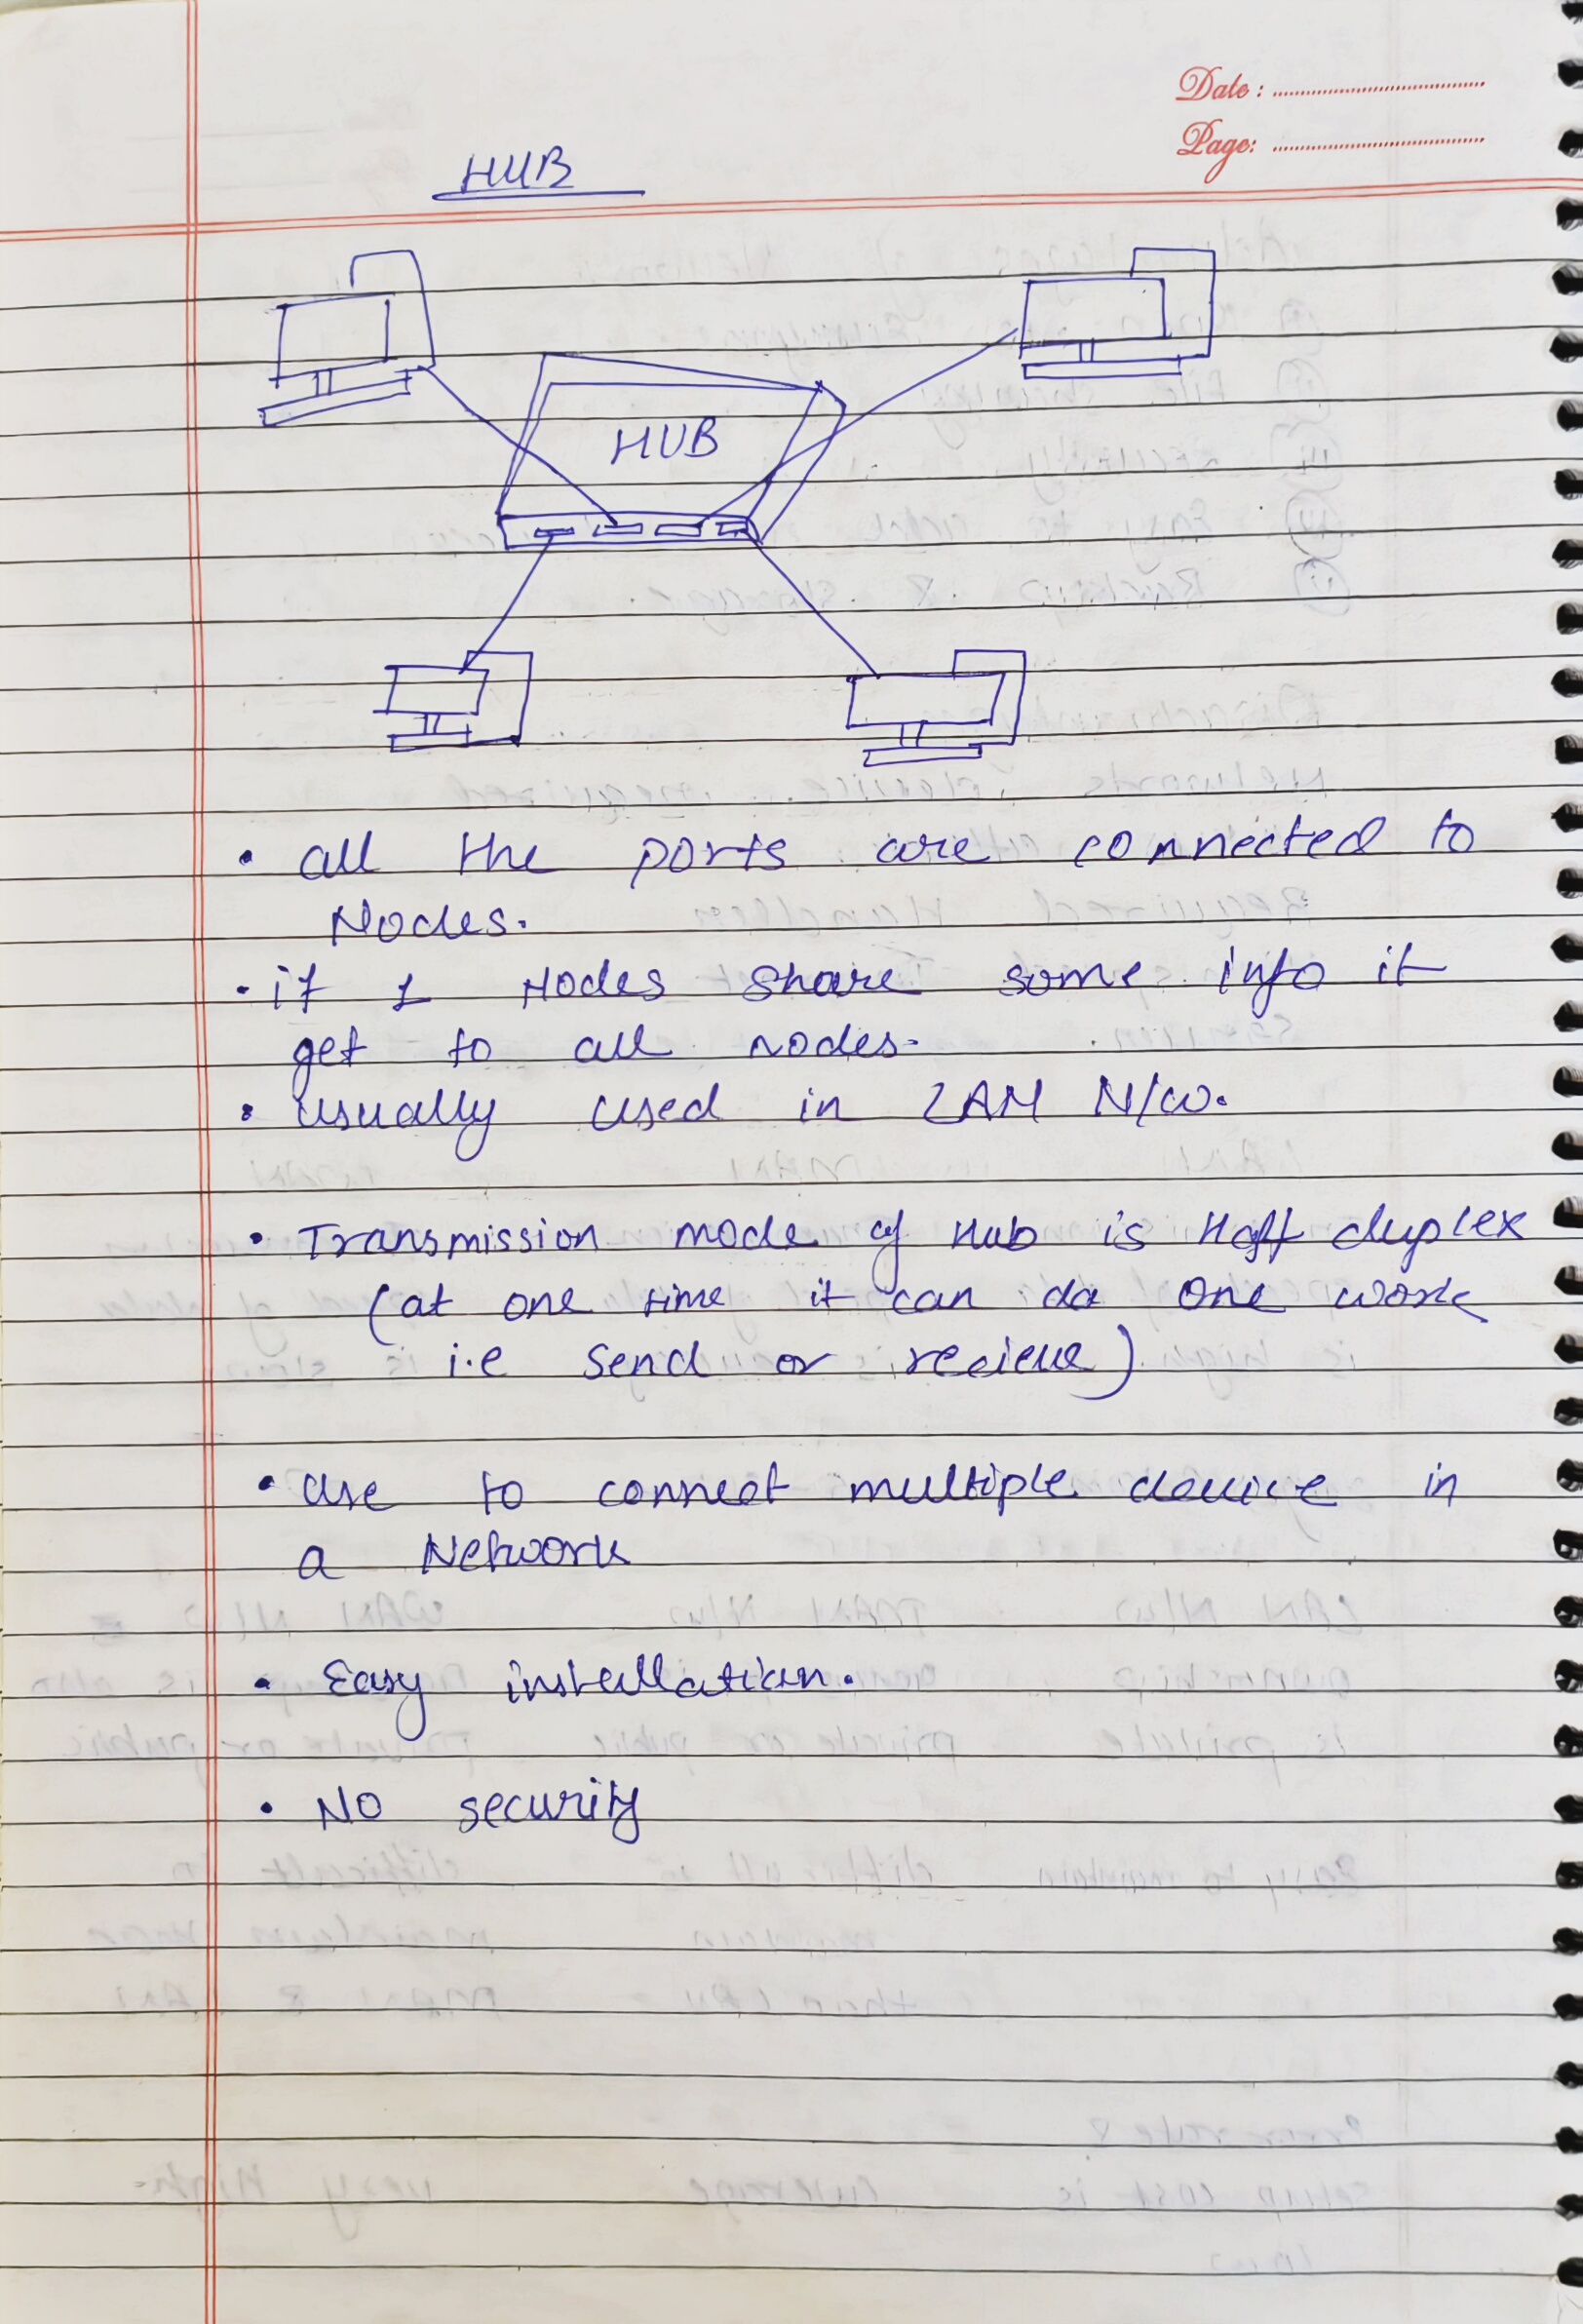 Date :
Page:
HUB
HUB
• all the ports are connected to
Nodes.
• if 1 Nodes share some info it
get to all nodes.
• usually used in LAN N/w.
• Transmission mode of Hub is Half duplex
(at one time it can do one work
i.e send or recieve)
• use to connect multiple device in
a Network
• Easy installation.
• No security